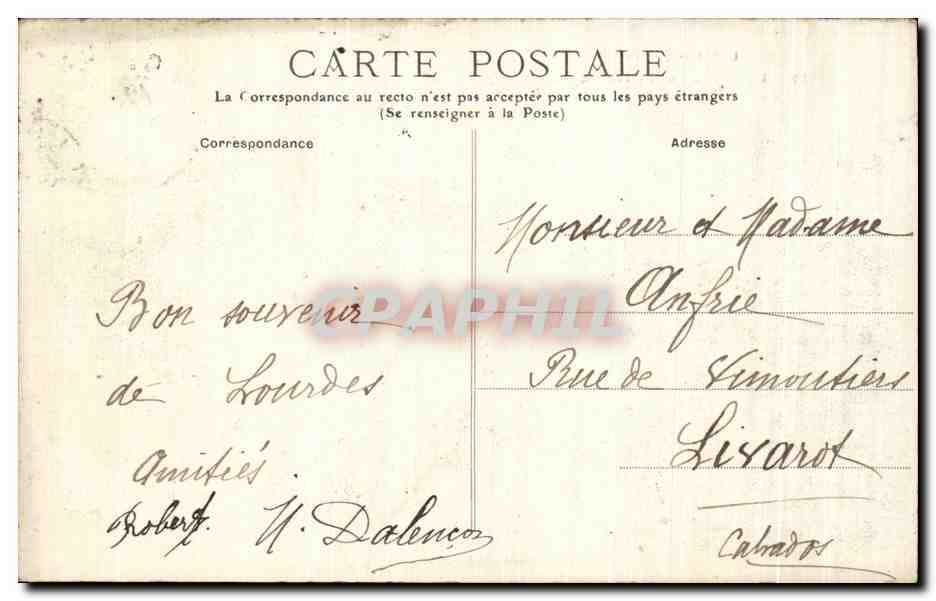 CARTE POSTALE
La Correspondance au recto n'est pas acceptée par tous les pays étrangers
(Se renseigner à la Poste)
Correspondance
Adresse
Bon souvenir
de Lourdes
Amitiés.
Robert. H. Dalençon
Monsieur et Madame
Anfrie
Rue de Vimoutiers
Livarot
Calvados
CPAPHIL